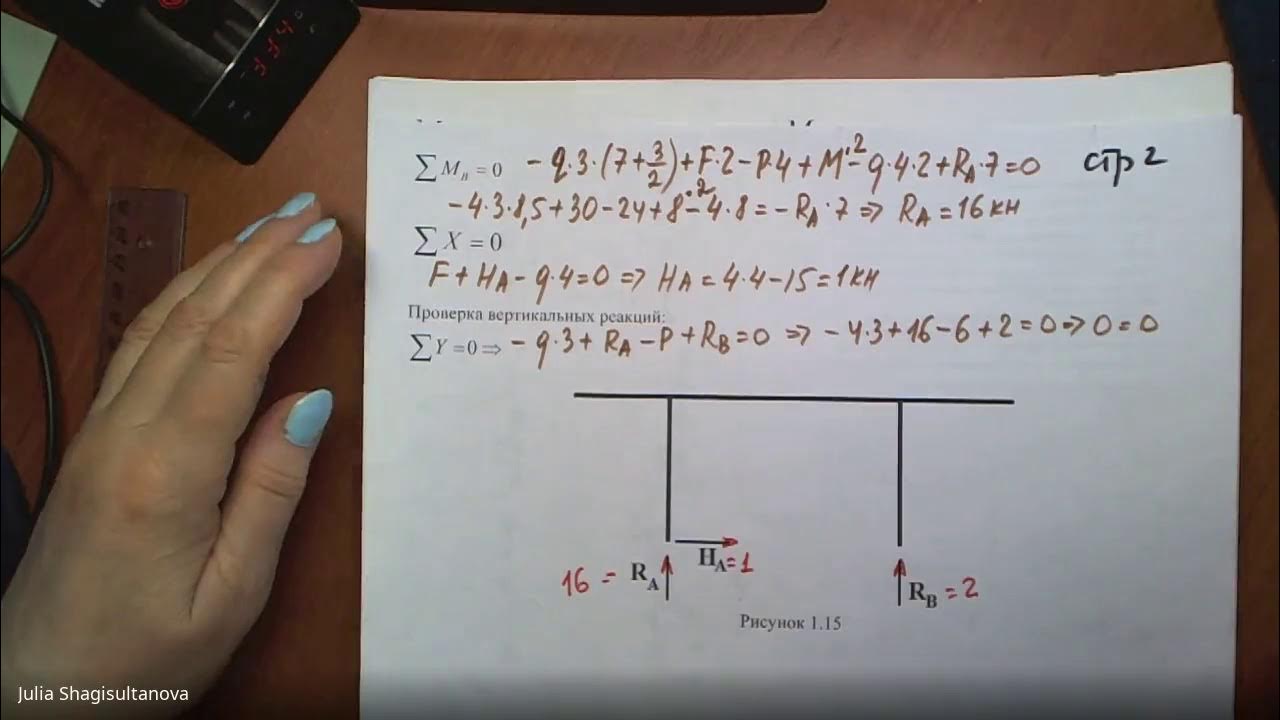 ΣMв=0 -q·3·(7+3/2)+F·2-P·4+M·2-q·4·2+RA·7=0 стр 2
-4·3·8,5+30-24+8·2-4·8=-RA·7 => RA=16кн
ΣX=0
F+HA-q·4=0 => HA=4·4-15=1кн
Проверка вертикальных реакций:
ΣY=0⇒ -q·3+RA-P+RB=0 => -4·3+16-6+2=0=>0=0
HA=1
16 = RA
RB=2
Рисунок 1.15
Julia Shagisultanova